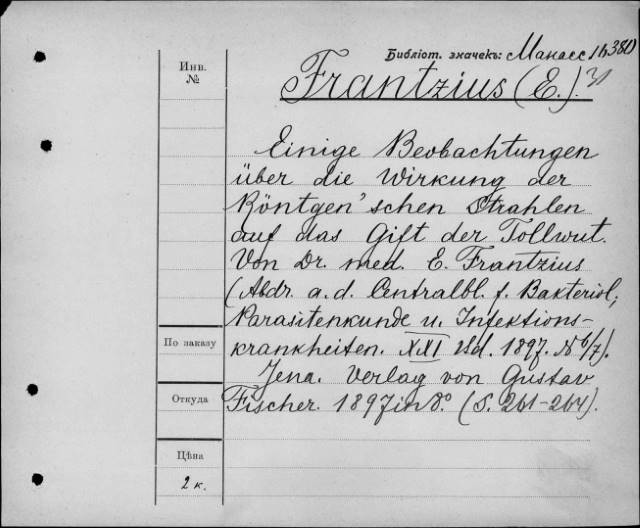 Библіот. значекъ: Манасс 1h380
Инв.
№
Frantzius (E.).
Einige Beobachtungen
über die Wirkung der
Röntgen'schen Strahlen
auf das Gift der Tollwut.
Von Dr. med. E. Frantzius
(Abdr. a. d. Centralbl. f. Bakteriol,
Parasitenkunde u. Infektions-
krankheiten. XXI Bd. 1897. N 6/7).
Jena. Verlag von Gustav
Fischer. 1897 in 8º. (S. 261-264).
По заказу
Откуда
Цѣна
2 к.